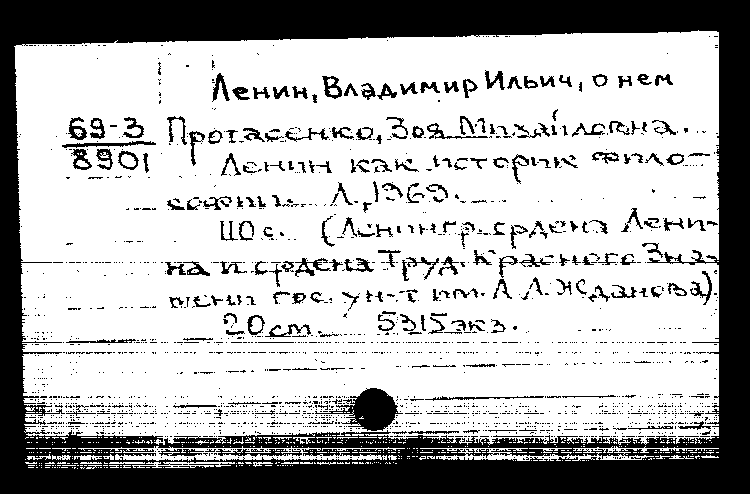 Ленин, Владимир Ильич, о нем
69-3
8901
Протасенко, Зоя Михайловна.
Ленин как историк фило-
софии. Л., 1969.
110 с. (Ленингр. ордена Лени-
на и ордена Труд. Красного Зна-
мени гос. ун-т им. А. А. Жданова)
20 см. 5315 экз.